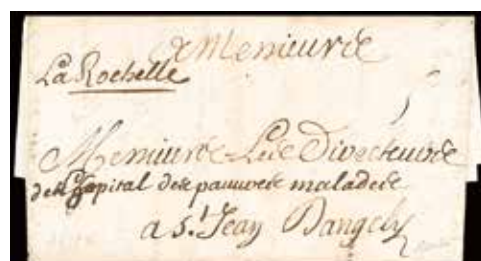 A Messieurs
La Rochelle
Messieurs Les Directeurs
de L'hopital des pauvres malades
a St Jean Dangely